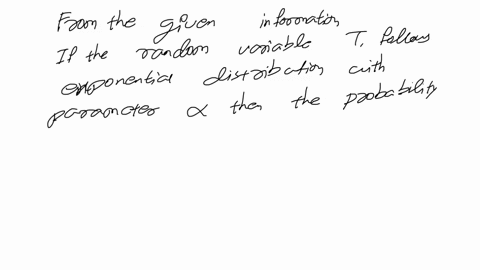 From the given information
If the random variable T, follows
exponential distribution with
parameter ∝ then the probability